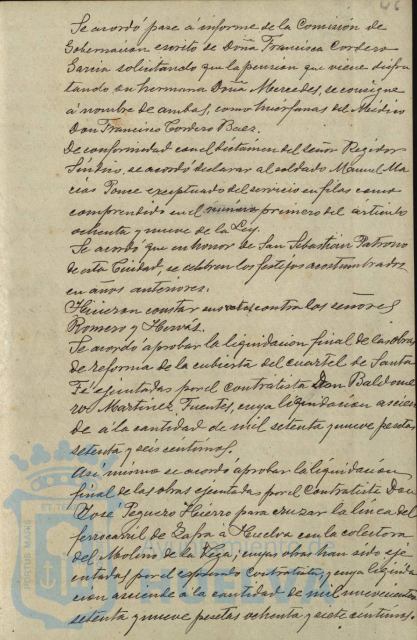 46
Se acordó pase á informe de la Comisión de
Gobernación escrito de Doña Francisca Cordero
Garcia solicitando que la pensión que viene disfru
tando su hermana Doña Mercedes, se consigne
á nombre de ambas, como huérfanas del Médico
Don Francisco Cordero Baez.
De conformidad con el dictamen del señor Regidor
Síndico, se acordó declarar al soldado Manuel Ma
cías Ponce exceptuado del servicio en filas como
comprendido en el primero del artículo
ochenta y nueve de la Ley.
Se acordó que en honor de San Sebastián Patrono
de esta Ciudad, se celebren los festejos acostumbrados
en años anteriores.
Hicieron constar sus votos contra los señores
Romero y Hervás.
Se acordó aprobar la liquidación final de las obras
de reforma de la cubierta del cuartel de Santa
Fé ejecutadas por el contratista Don Baldome
ro Martinez Fuentes, cuya liquidacion ascien
de á la cantidad de mil setenta y nueve pesetas
setenta y seis centimos.
Asi mismo se acordó aprobar la liquidación
final de las obras ejecutadas por el Contratista Don
José Peguero Huerro para cruzar la linea del
ferrocarril de Zafra á Huelva con la colectora
del Molino de la Vega; cuyas obras han sido eje
cutadas por el expresado contratista y cuya liquida
cion asciende á la cantidad de mil novecientas
setenta y nueve pesetas ochenta y siete centimos,